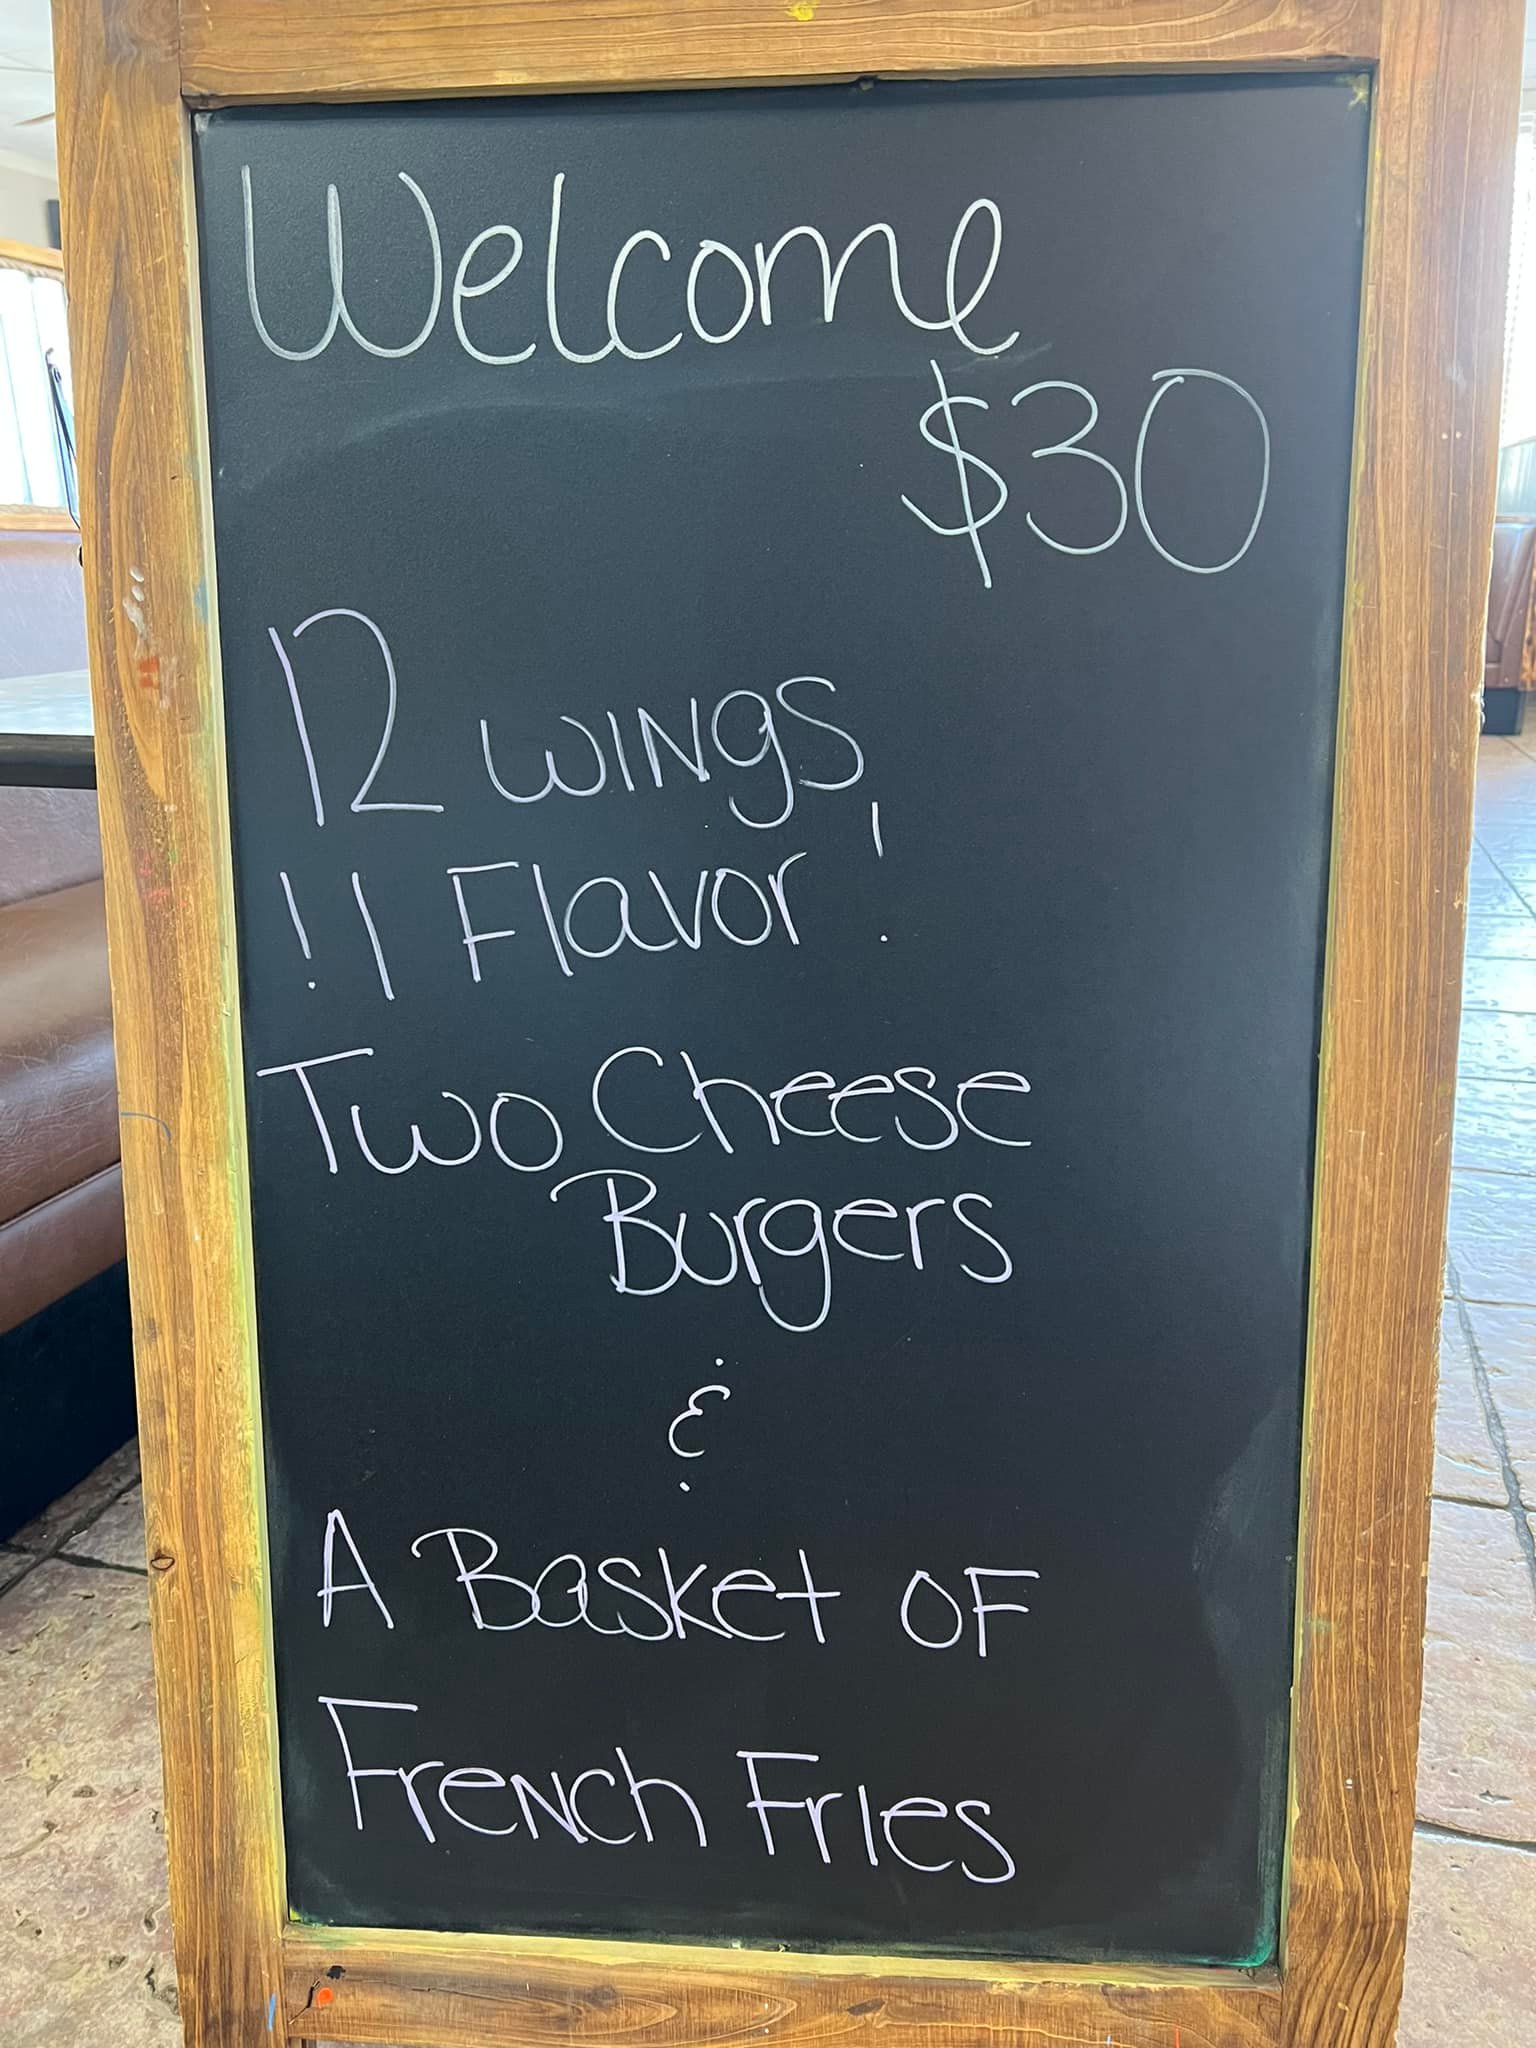 Welcome
$30
12 WINgS
! 1 Flavor !
Two Cheese
Burgers
&
A Basket OF
FreNch FrIes